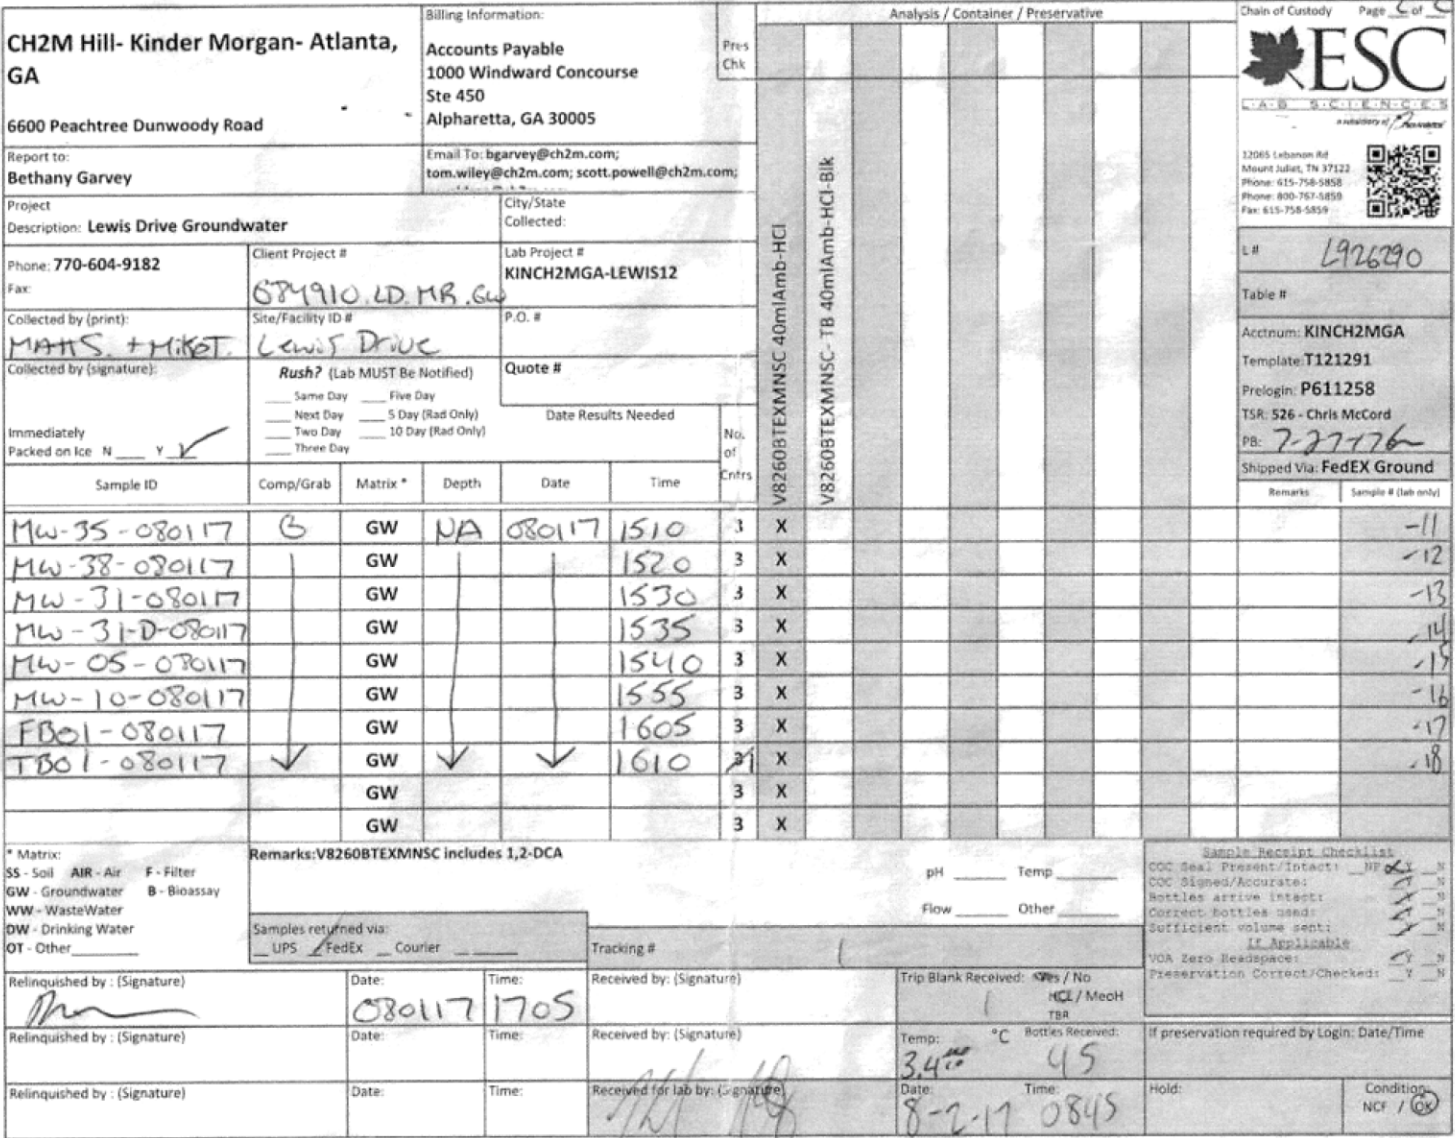 CH2M Hill- Kinder Morgan- Atlanta,
GA
6600 Peachtree Dunwoody Road
Billing Information:
Accounts Payable
1000 Windward Concourse
Ste 450
Alpharetta, GA 30005
Pres
Chk
Analysis / Container / Preservative
Chain of Custody Page of
ESC
L·A·B S·C·I·E·N·C·E·S
a subsidiary of
12065 Lebanon Rd
Mount Juliet, TN 37122
Phone: 615-758-5858
Phone: 800-767-5859
Fax: 615-758-5859
Report to:
Bethany Garvey
Email To: bgarvey@ch2m.com;
tom.wiley@ch2m.com; scott.powell@ch2m.com;
Project
Description: Lewis Drive Groundwater
City/State
Collected:
Phone: 770-604-9182
Fax:
Client Project #
684910.LD.MR.GW
Lab Project #
KINCH2MGA-LEWIS12
Collected by (print):
MATT S. + MIKE T.
Site/Facility ID #
Lewis Drive
P.O. #
Collected by (signature):
Rush? (Lab MUST Be Notified)
Same Day Five Day
Next Day 5 Day (Rad Only)
Two Day 10 Day (Rad Only)
Three Day
Quote #
Date Results Needed
Immediately
Packed on Ice N Y ✓
No.
of
Cntrs
V8260BTEXMNSC 40mlAmb-HCl
V8260BTEXMNSC- TB 40mlAmb-HCl-Blk
L # L926290
Table #
Acctnum: KINCH2MGA
Template: T121291
Prelogin: P611258
TSR: 526 - Chris McCord
PB: 7-27-17
Shipped Via: FedEX Ground
Sample ID Comp/Grab Matrix * Depth Date Time
Remarks Sample # (lab only)
MW-35-080117 G GW NA 080117 1510 3 X -11
MW-38-080117 GW 1520 3 X -12
MW-31-080117 GW 1530 3 X -13
MW-31-D-080117 GW 1535 3 X -14
MW-05-080117 GW 1540 3 X -15
MW-10-080117 GW 1555 3 X -16
FB01-080117 GW 1605 3 X -17
TB01-080117 GW 1610 1 X -18
GW 3 X
GW 3 X
* Matrix:
SS - Soil AIR - Air F - Filter
GW - Groundwater B - Bioassay
WW - WasteWater
DW - Drinking Water
OT - Other
Remarks:V8260BTEXMNSC includes 1,2-DCA
Samples returned via:
UPS ✓ FedEx Courier
Tracking #
pH Temp
Flow Other
Sample Receipt Checklist
COC Seal Present/Intact: NP Y N
COC Signed/Accurate: Y N
Bottles arrive intact: Y N
Correct bottles used: Y N
Sufficient volume sent: Y N
If Applicable
VOA Zero Headspace: Y N
Preservation Correct/Checked: Y N
Relinquished by : (Signature)
Date:
080117
Time:
1705
Received by: (Signature)
Trip Blank Received: Yes / No
1
HCL / MeoH
TBR
Relinquished by : (Signature)
Date:
Time:
Received by: (Signature)
Temp: °C
3.4
Bottles Received:
45
If preservation required by Login: Date/Time
Relinquished by : (Signature)
Date:
Time:
Received for lab by: (Signature)
Date:
8-2-17
Time:
0845
Hold:
Condition:
NCF / OK